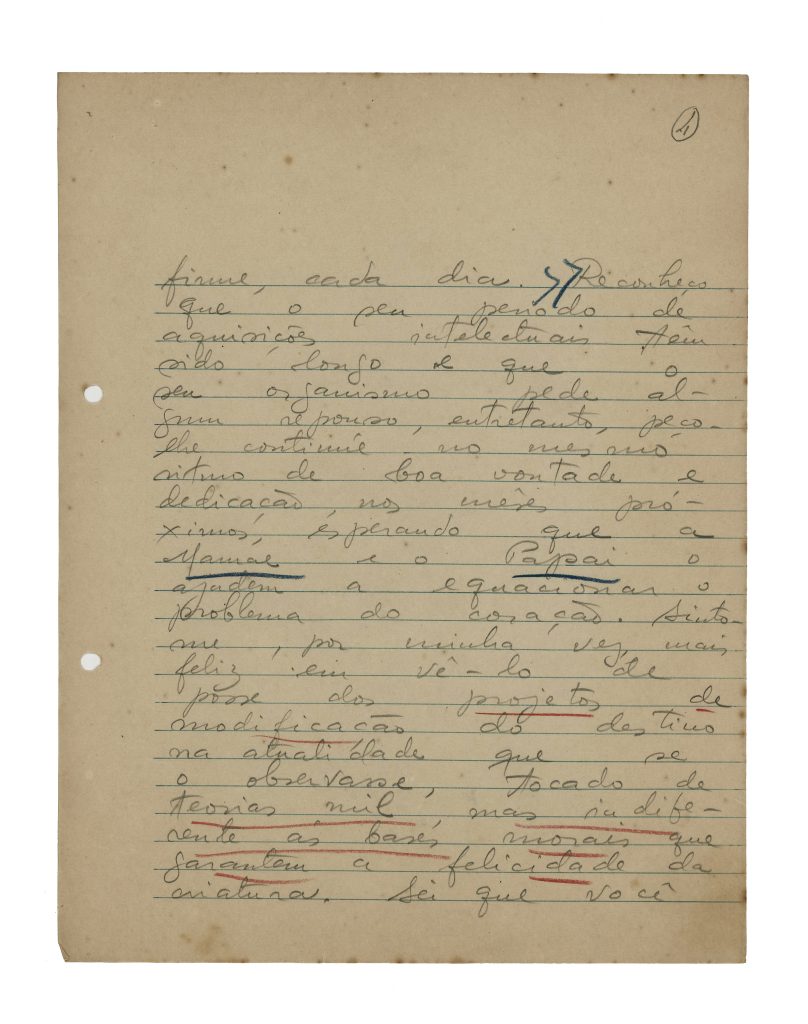 4
firme, cada dia. Reconheço
que o seu periodo de
aquisições intelectuais têm
sido longo e que o
seu organismo pede al-
gum repouso, entretanto, peço-
lhe continúe no mesmo
ritmo de boa vontade e
dedicação, nos mêses pró-
ximos, esperando que a
Mamãe e o Papai o
ajudem a equacionar o
problema do coração. Sinto-
me, por minha vez, mais
feliz em vê-lo de
posse dos projetos de
modificação do destino
na atualidade que se
o observasse, tocado de
teorias mil, mas indife-
rente ás bases morais que
garantem a felicidade da
criatura. Sei que você